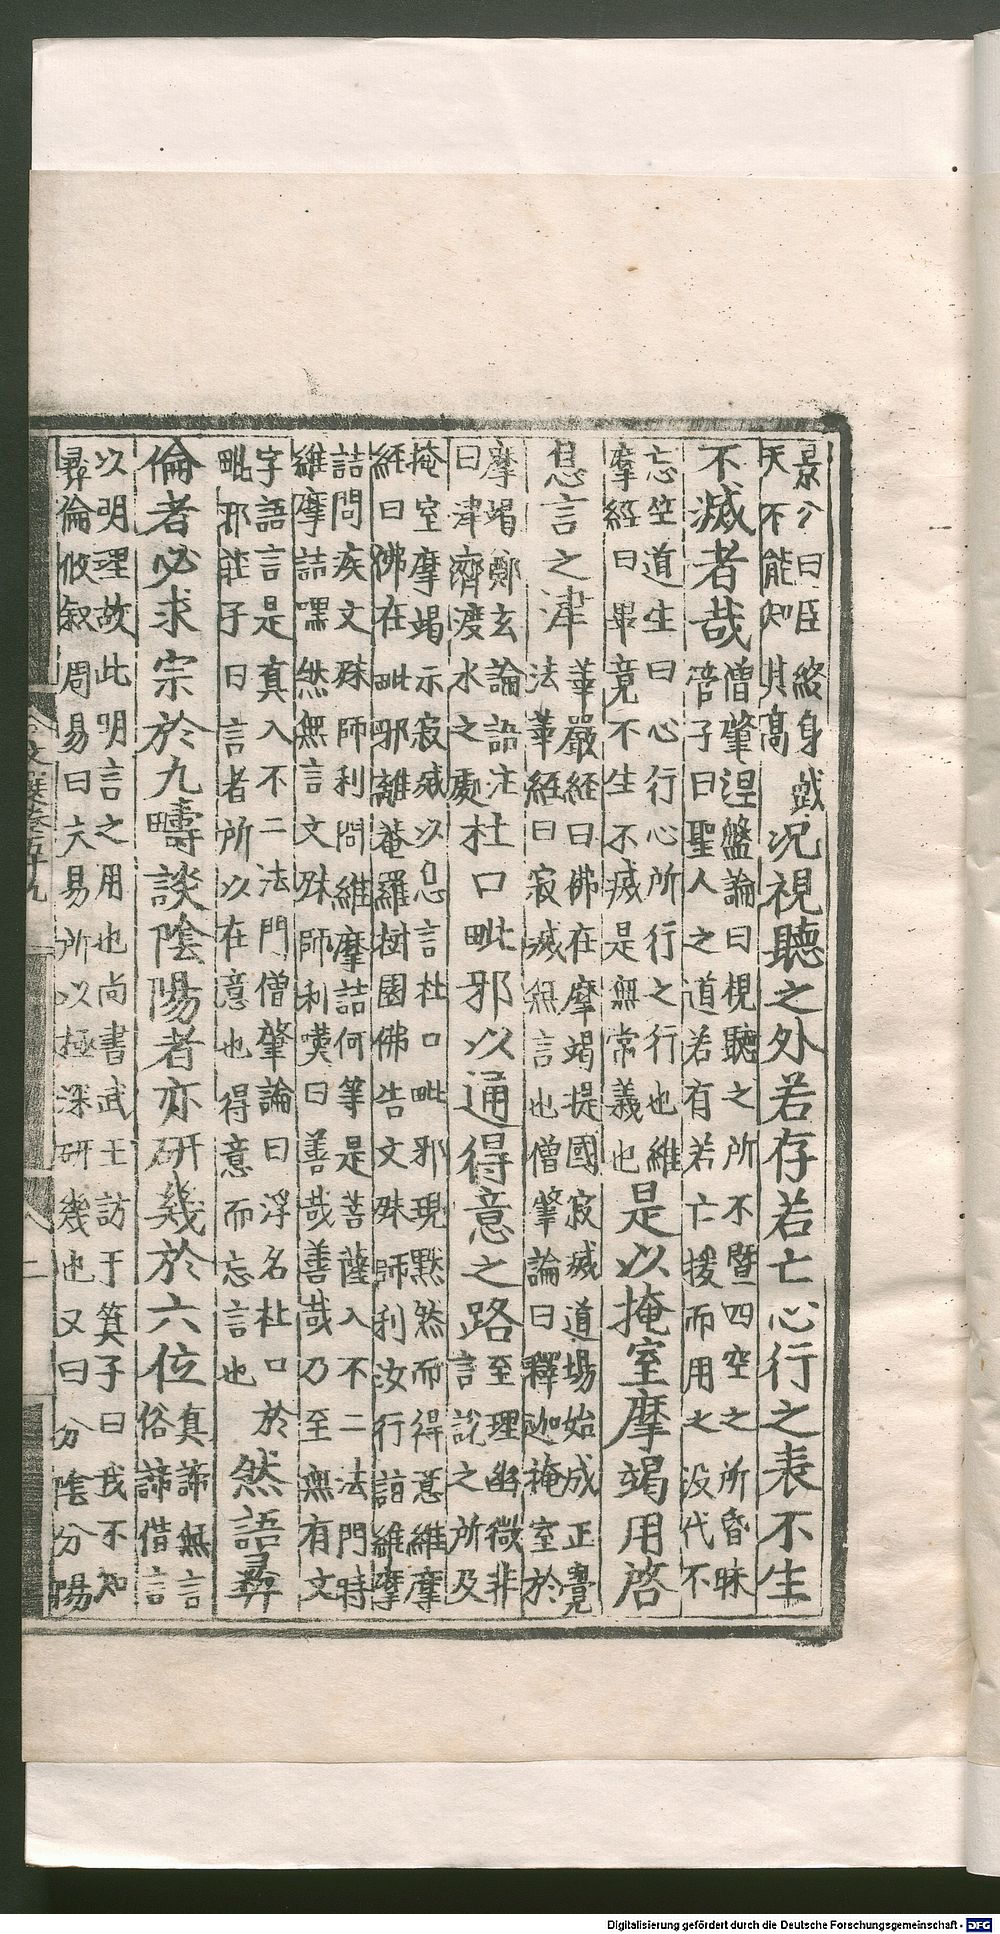 景公曰臣終身戴
天不能知其高
況視聽之外若存若亡心行之表不生
不滅者哉
僧肇涅盤論曰視聽之所不暨四空之所昏昧
管子曰聖人之道若有若亡援而用之没代不
忘竺道生曰心行心所行之行也維
摩經曰畢竟不生不滅是無常義也
是以掩室摩竭用啓
息言之津
華嚴經曰佛在摩竭提國寂滅道場始成正覺
法華經曰寂滅無言也僧肇論曰釋迦掩室於
摩竭鄭玄論語注
曰津濟渡水之處
杜口毗邪以通得意之路
言至理幽微非
言説之所及
掩室摩竭示寂滅以息言杜口毗邪現黙然而得意維摩
經曰佛在毗邪離菴羅樹園佛告文殊師利汝行詣維摩
詰問疾文殊師利問維摩詰何等是菩薩入不二法門時
維摩詰嘿然無言文殊師利嘆曰善哉善哉乃至無有文
字語言是真入不二法門僧肇論曰浮名杜口於
毗邪莊子曰言者所以在意也得意而忘言也
然語彛
倫者必求宗於九疇談陰陽者亦研幾於六位
真諦無言
俗諦借言
以明理故此明言之用也尚書武王訪于箕子曰我不知
彛倫攸叙周易曰夫易所以極深研幾也又曰分陰分陽
文選卷五十九
二
Digitalisierung gefördert durch die Deutsche Forschungsgemeinschaft - DFG